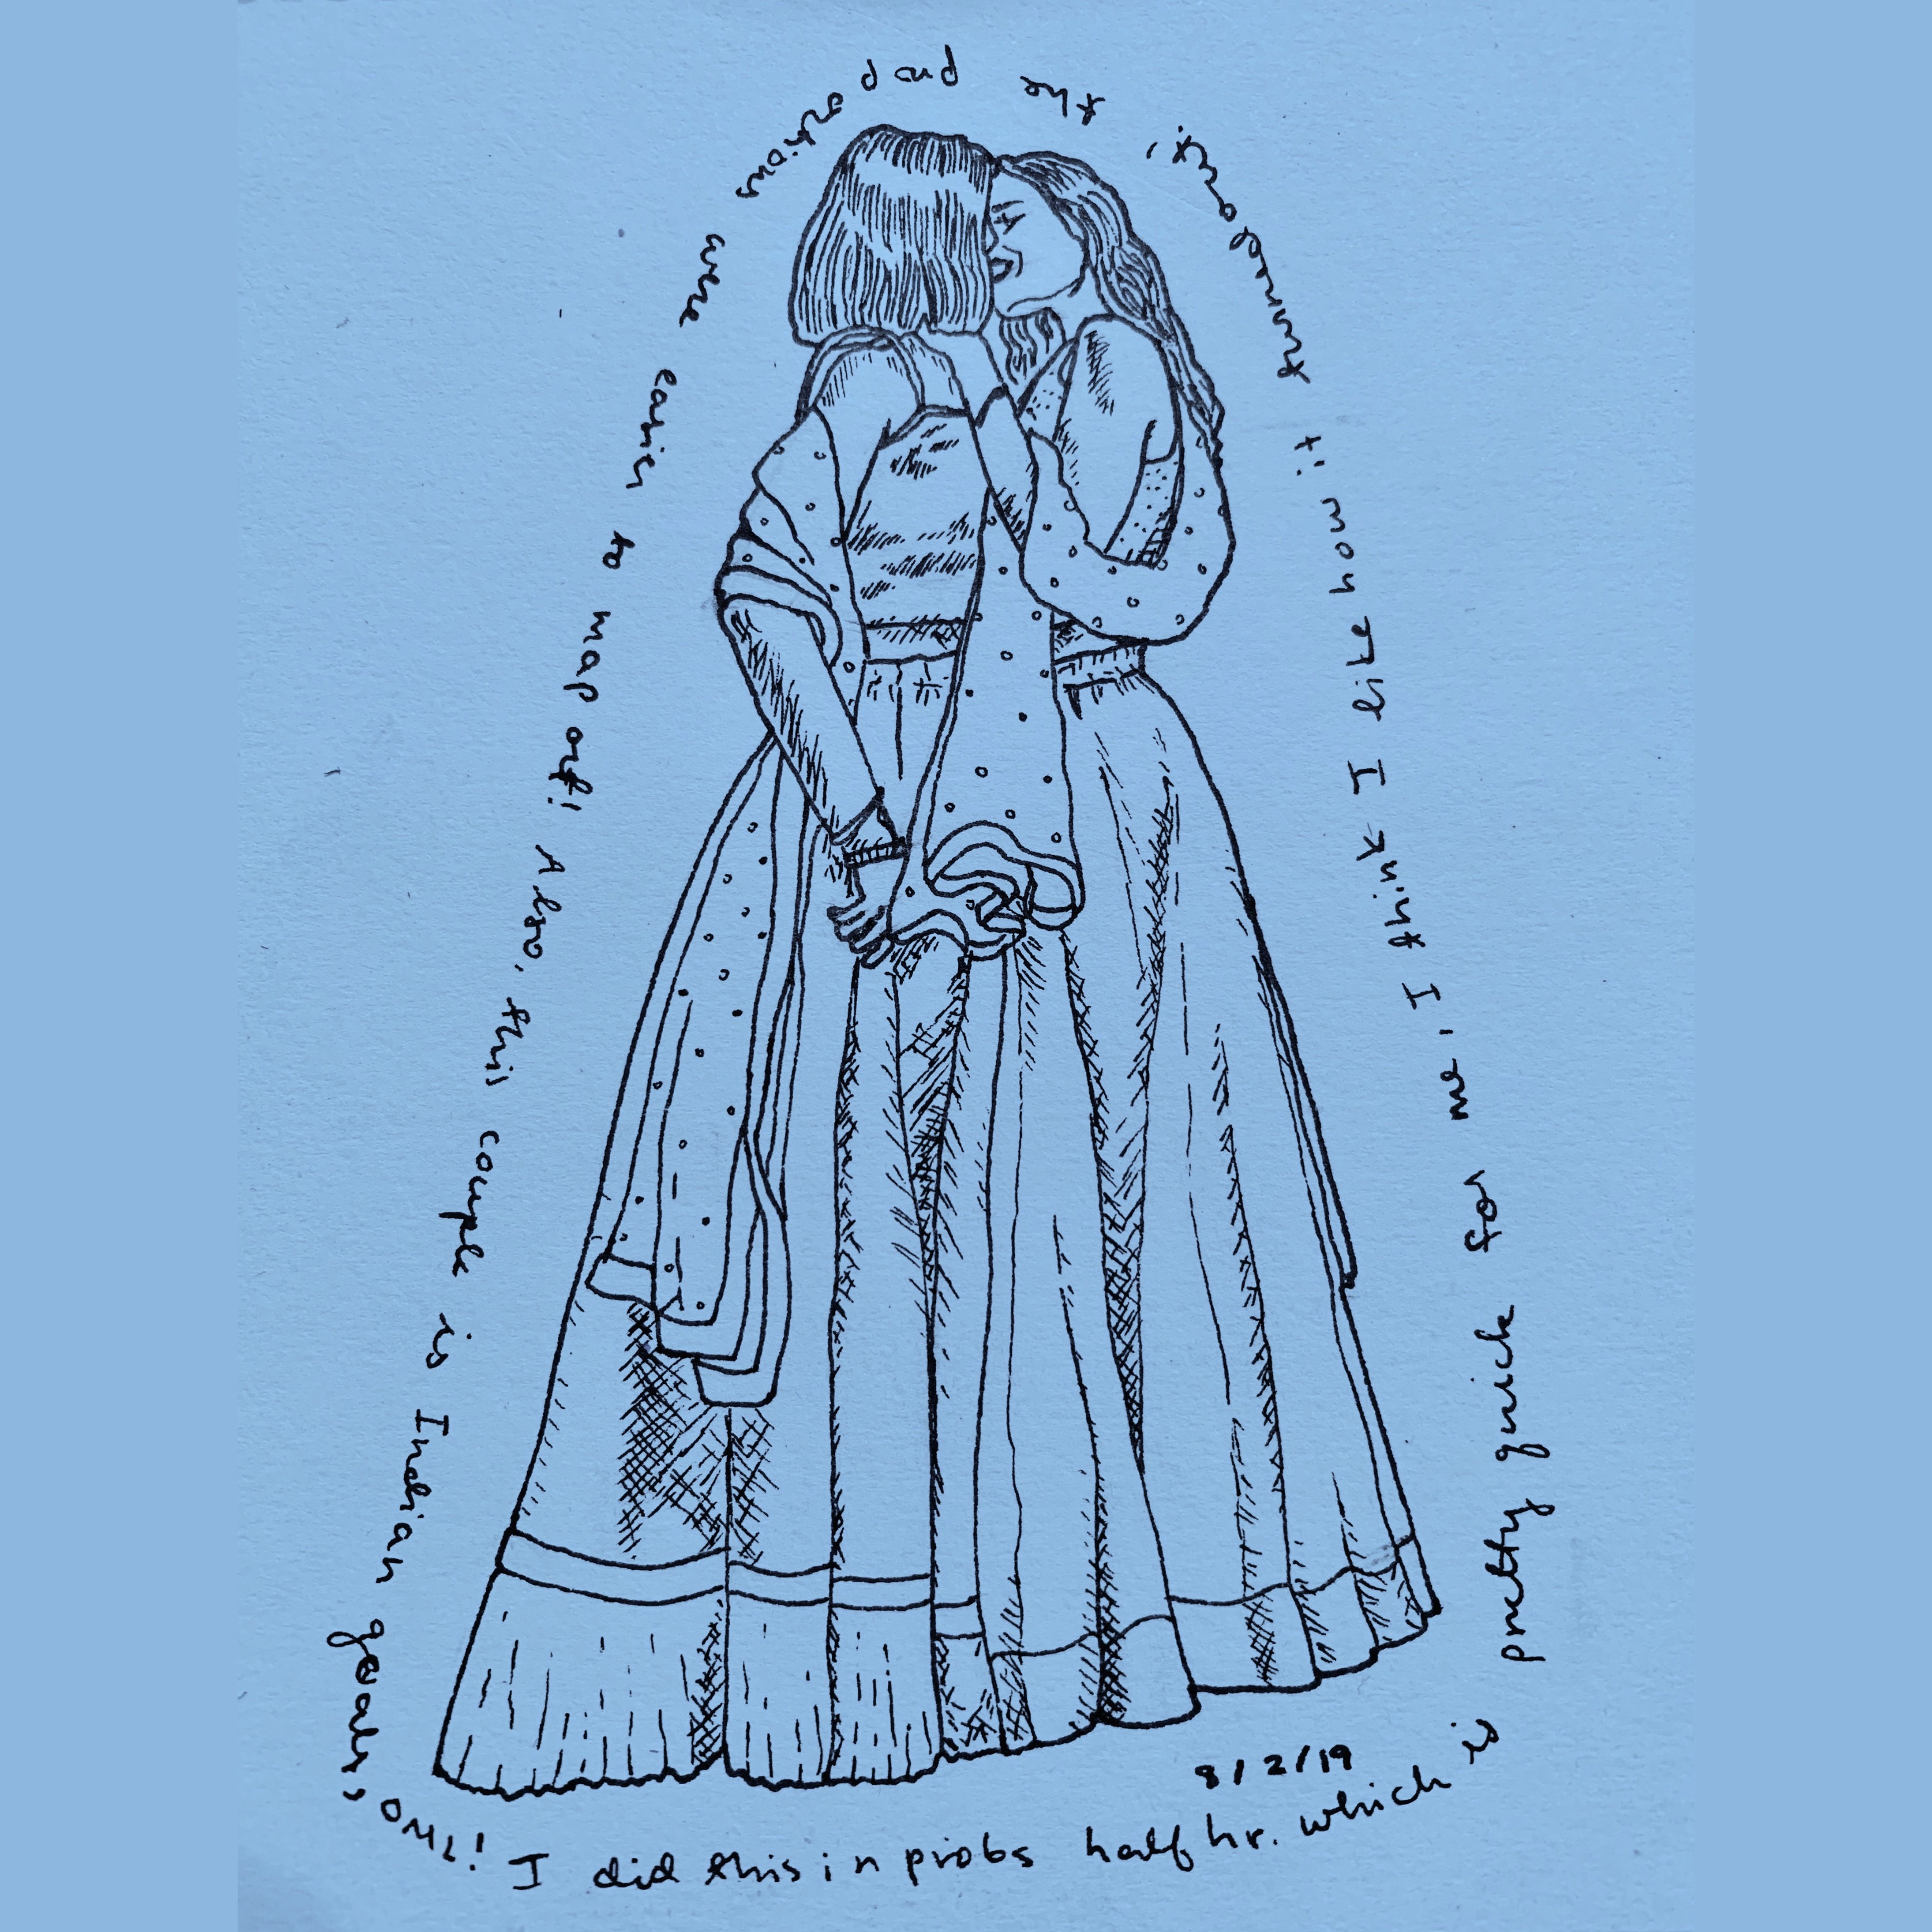 I did this in probs half hr. which is pretty quick for me, I think I like how it turned out! the proportions were easier to map out! Also, this couple is Indian goals, OML!
8/2/19